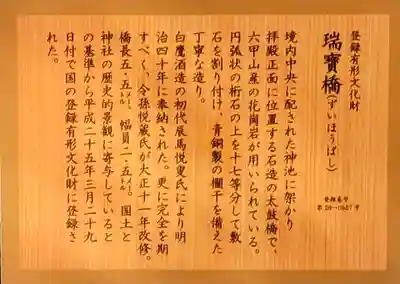 登録有形文化財
瑞寶橋(ずいほうばし)
登録番号
第28-0587号
境内中央に配された神池に架かり
拝殿正面に位置する石造の太鼓橋で、
六甲山産の花崗岩が用いられている。
円弧状の桁石の上を十七等分して敷
石を割り付け、青銅製の欄干を備えた
丁寧な造り。
白鹿酒造の初代辰馬悦叟氏により明
治四十年に奉納された。更に完全を期
すべく、令孫悦蔵氏が大正十一年改修。
橋長五・五メートル、幅員二・五メートル。国土と
神社の歴史的景観に寄与していると
の基準から平成二十五年三月二十九
日付で国の登録有形文化財に登録さ
れた。